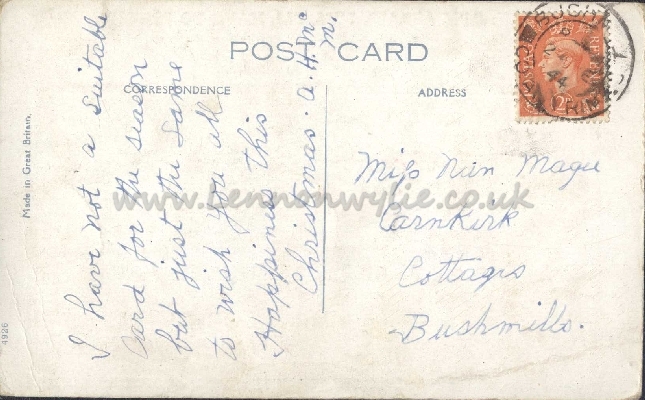 POST CARD
CORRESPONDENCE
ADDRESS
Made in Great Britain.
4926
I have not a suitable
Card for the season
but just the same
to wish you all
Happiness this
Christmas. A. H. Mc
M.
Miss Nan Magee
Carnkirk
Cottages
Bushmills.
www.lennonwylie.co.uk
POSTAGE
REVENUE
BUSHM
44